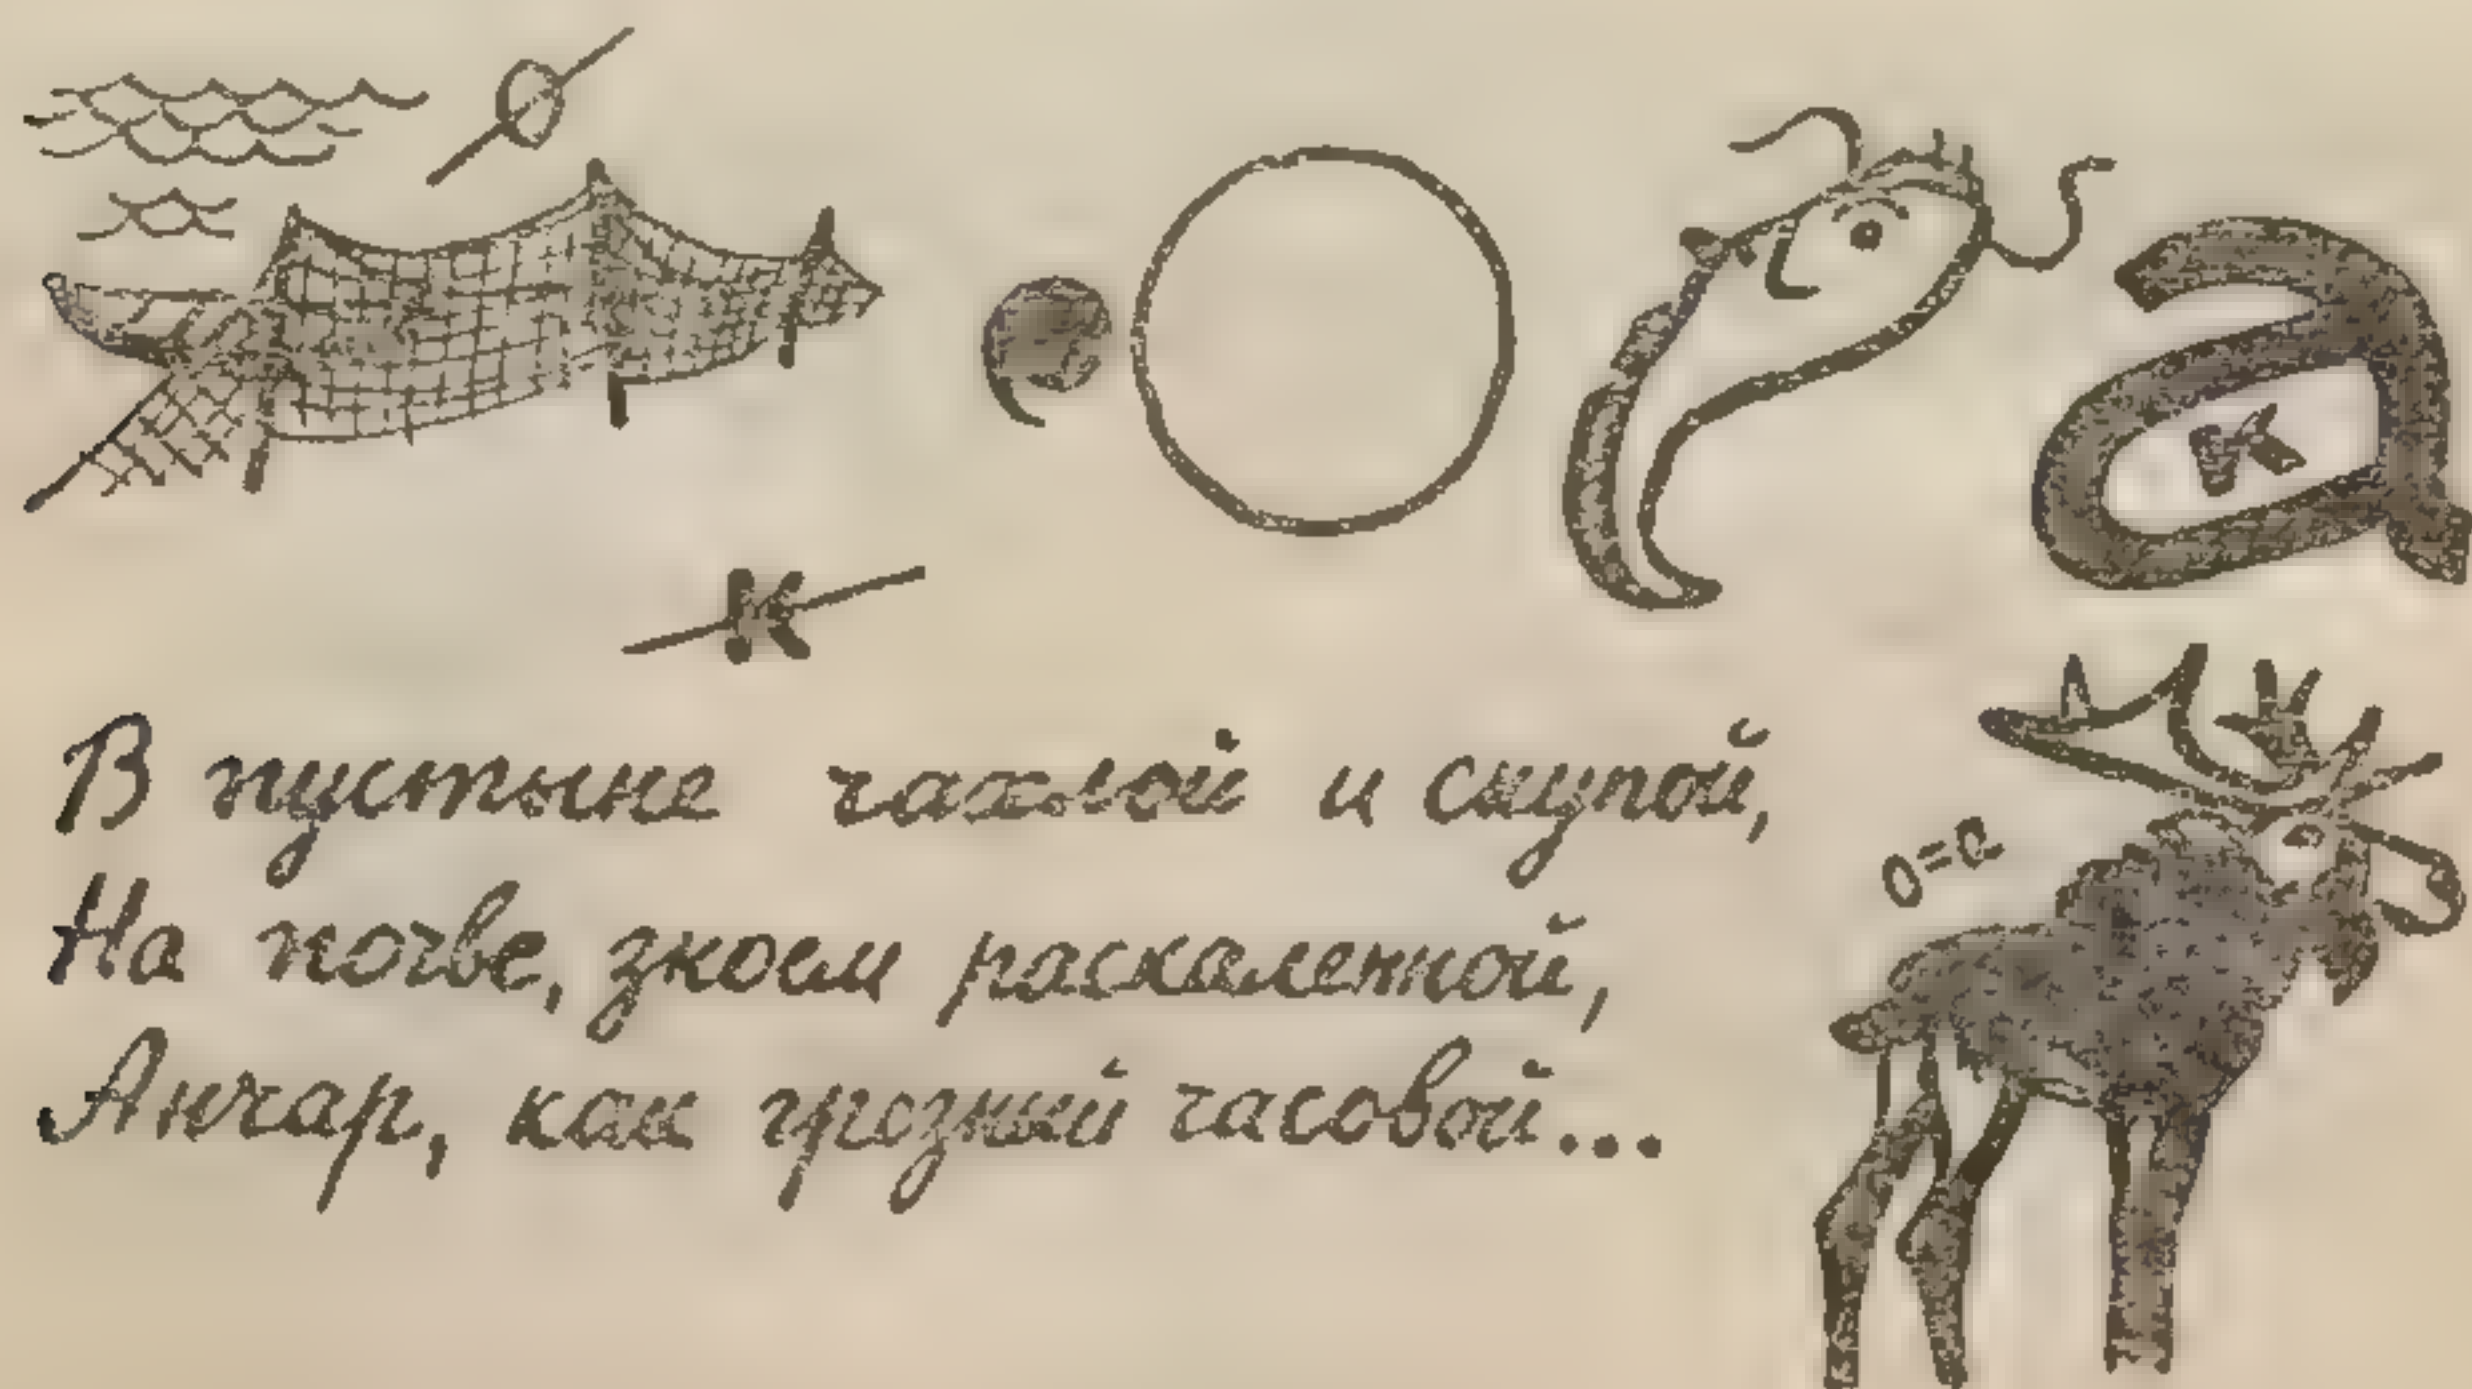 О
,
а
К
К
О=а
В пустыне чахлой и скупой,
На почве, зноем раскаленной,
Анчар, как грозный часовой...